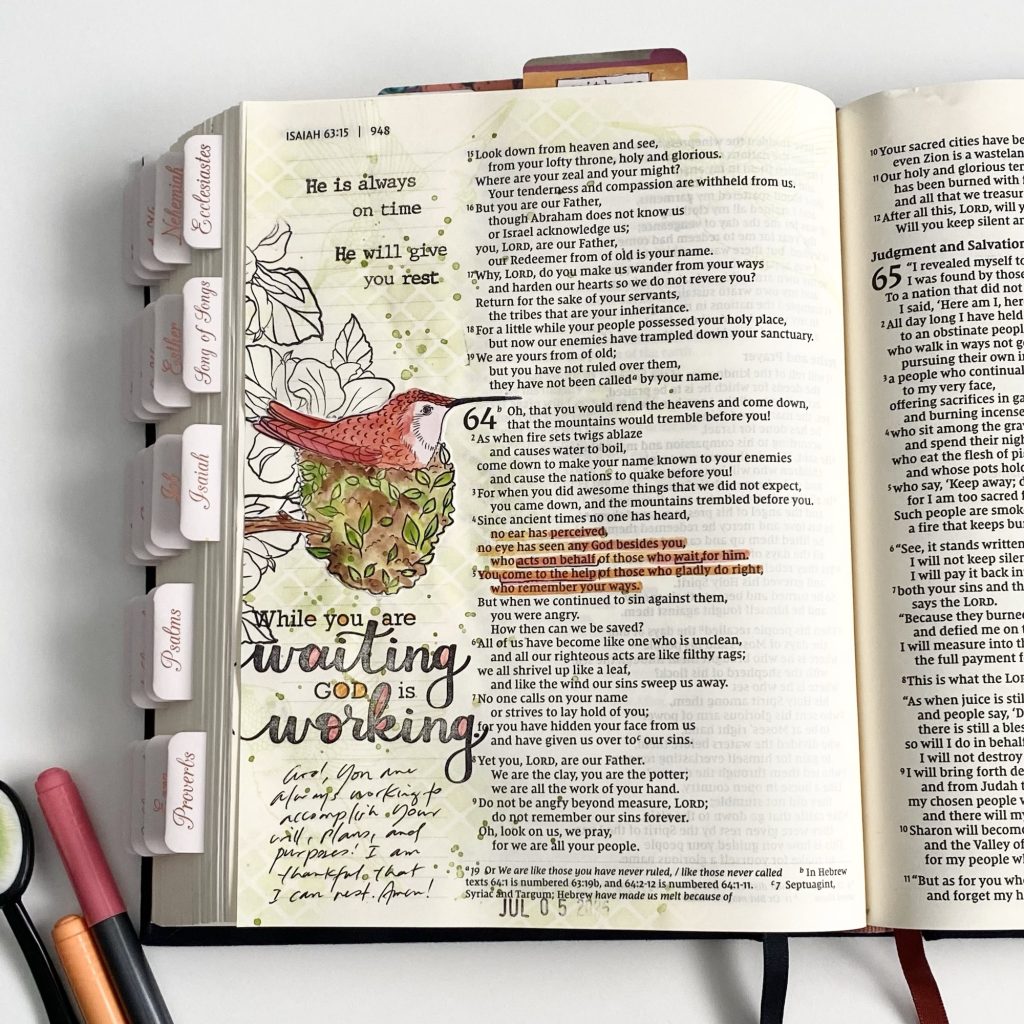 ISAIAH 63:15 | 948
He is always
on time
He will give
you rest
While you are
waiting
GOD is
working.
God, You are
always working to
accomplish Your
will, plans, and
purposes! I am
thankful that
I can rest. Amen!
15 Look down from heaven and see,
from your lofty throne, holy and glorious.
Where are your zeal and your might?
Your tenderness and compassion are withheld from us.
16 But you are our Father,
though Abraham does not know us
or Israel acknowledge us;
you, LORD, are our Father,
our Redeemer from of old is your name.
17 Why, LORD, do you make us wander from your ways
and harden our hearts so we do not revere you?
Return for the sake of your servants,
the tribes that are your inheritance.
18 For a little while your people possessed your holy place,
but now our enemies have trampled down your sanctuary.
19 We are yours from of old;
but you have not ruled over them,
they have not been called a by your name.
64 b Oh, that you would rend the heavens and come down,
that the mountains would tremble before you!
2 As when fire sets twigs ablaze
and causes water to boil,
come down to make your name known to your enemies
and cause the nations to quake before you!
3 For when you did awesome things that we did not expect,
you came down, and the mountains trembled before you.
4 Since ancient times no one has heard,
no ear has perceived,
no eye has seen any God besides you,
who acts on behalf of those who wait for him.
5 You come to the help of those who gladly do right,
who remember your ways.
But when we continued to sin against them,
you were angry.
How then can we be saved?
6 All of us have become like one who is unclean,
and all our righteous acts are like filthy rags;
we all shrivel up like a leaf,
and like the wind our sins sweep us away.
7 No one calls on your name
or strives to lay hold of you;
for you have hidden your face from us
and have given us over to c our sins.
8 Yet you, LORD, are our Father.
We are the clay, you are the potter;
we are all the work of your hand.
9 Do not be angry beyond measure, LORD;
do not remember our sins forever.
Oh, look on us, we pray,
for we are all your people.
a 19 Or We are like those you have never ruled, / like those never called b In Hebrew
texts 64:1 is numbered 63:19b, and 64:2-12 is numbered 64:1-11. c 7 Septuagint,
Syriac and Targum; Hebrew have made us melt because of
JUL 05
10 Your sacred cities have be
even Zion is a wastelan
11 Our holy and glorious te
has been burned with
and all that we treasur
12 After all this, LORD, will y
Will you keep silent an
Judgment and Salvation
65 "I revealed myself to
I was found by those
To a nation that did not
I said, 'Here am I, her
2 All day long I have held
to an obstinate people
who walk in ways not go
pursuing their own i
3 a people who continual
to my very face,
offering sacrifices in ga
and burning incense
4 who sit among the grav
and spend their nigh
who eat the flesh of pi
and whose pots hol
5 who say, 'Keep away; d
for I am too sacred f
Such people are smok
a fire that keeps bu
6 "See, it stands written
I will not keep siler
I will pay it back in
7 both your sins and th
says the LORD.
"Because they burne
and defied me on t
I will measure into th
the full payment f
8 This is what the LOR
"As when juice is stil
and people say, 'D
there is still a bles
so will I do in behalf
I will not destroy
9 I will bring forth de
and from Judah t
my chosen people w
and there will my
10 Sharon will become
and the Valley of
for my people wh
11 "But as for you wh
and forget my h
Nehemiah
Ecclesiastes
Esther
Song of Songs
Job
Isaiah
Psalms
Proverbs